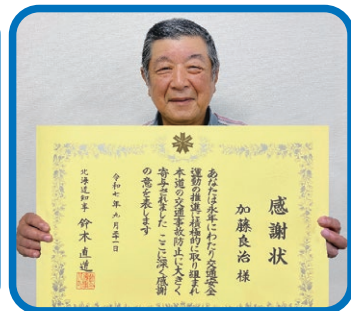 感謝状
加藤良治 様
あなたは永年にわたり交通安全
運動の推進に積極的に取り組まれ
本道の交通事故防止に大きく
寄与されました ここに深く感謝
の意を表します
令和七年九月二十一日
北海道知事 鈴木直道